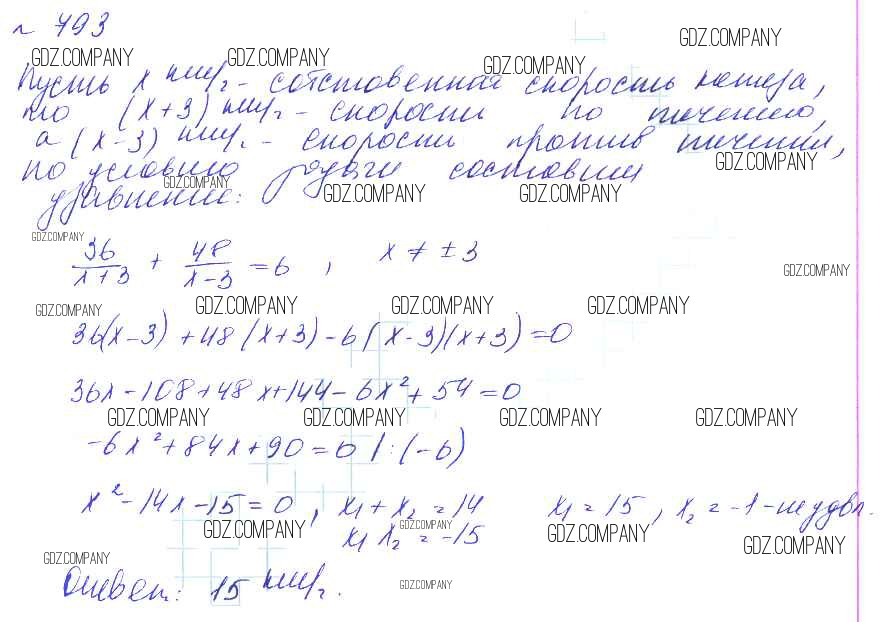 № 793
GDZ.COMPANY
GDZ.COMPANY GDZ.COMPANY GDZ.COMPANY
Пусть x км/ч - собственная скорость катера,
то (x+3) км/ч - скорость по течению,
а (x-3) км/ч - скорость против течения,
GDZ.COMPANY
по условию задачи составим
GDZ.COMPANY GDZ.COMPANY GDZ.COMPANY
уравнение:
GDZ.COMPANY
36/(x+3) + 48/(x-3) = 6 , x ≠ ±3
GDZ.COMPANY
GDZ.COMPANY GDZ.COMPANY GDZ.COMPANY GDZ.COMPANY
36(x-3) + 48(x+3) - 6(x-3)(x+3) = 0
36x - 108 + 48x + 144 - 6x² + 54 = 0
GDZ.COMPANY GDZ.COMPANY GDZ.COMPANY GDZ.COMPANY
-6x² + 84x + 90 = 0 | :(-6)
x² - 14x - 15 = 0 , x₁ + x₂ = 14 x₁ = 15 , x₂ = -1 - не удовл.
GDZ.COMPANY GDZ.COMPANY GDZ.COMPANY
x₁ x₂ = -15
GDZ.COMPANY
GDZ.COMPANY
Ответ: 15 км/ч.
GDZ.COMPANY